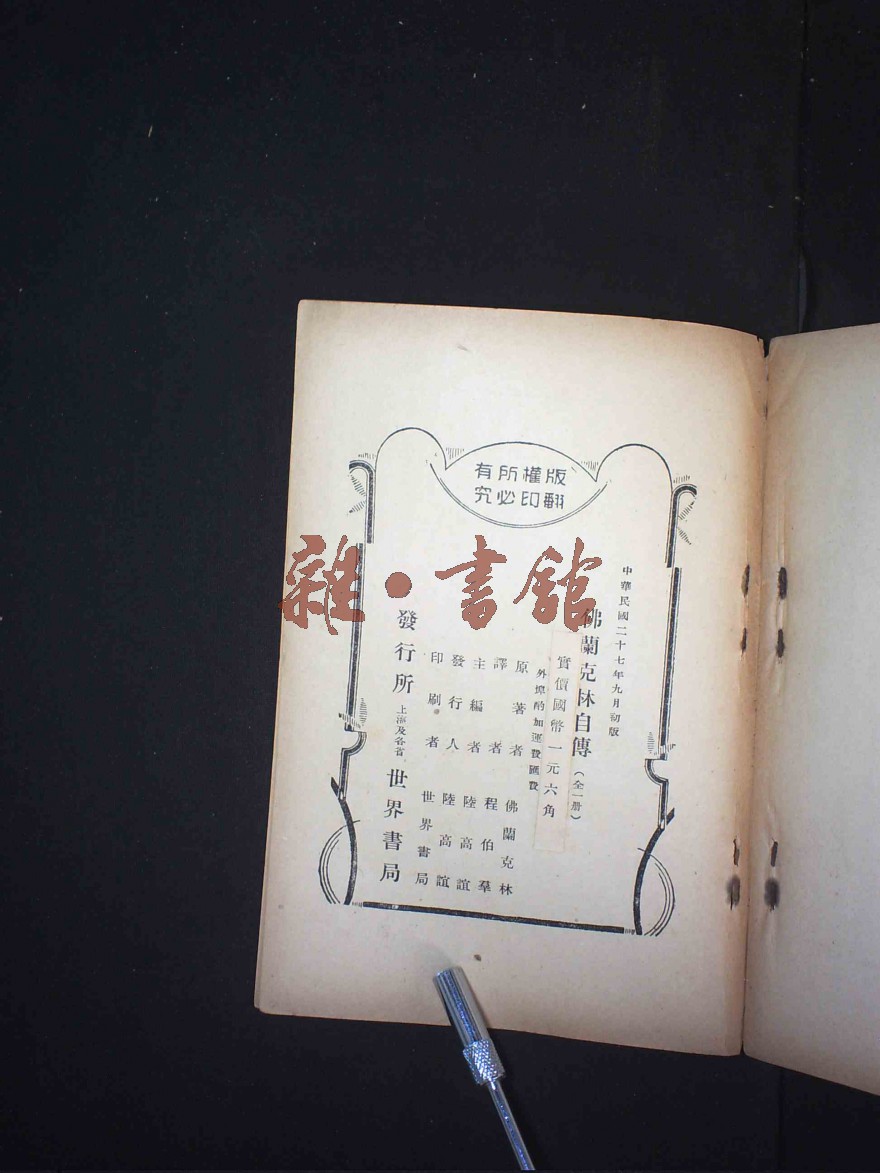 版權所有
翻印必究
中華民國二十七年九月初版
佛蘭克林自傳（全一册）
實價國幣一元六角
外埠酌加運費匯費
原著者 佛蘭克林
譯者 程伯羣
主編者 陸高誼
發行人 陸高誼
印刷者 世界書局
發行所 上海及各省 世界書局
雜·書館